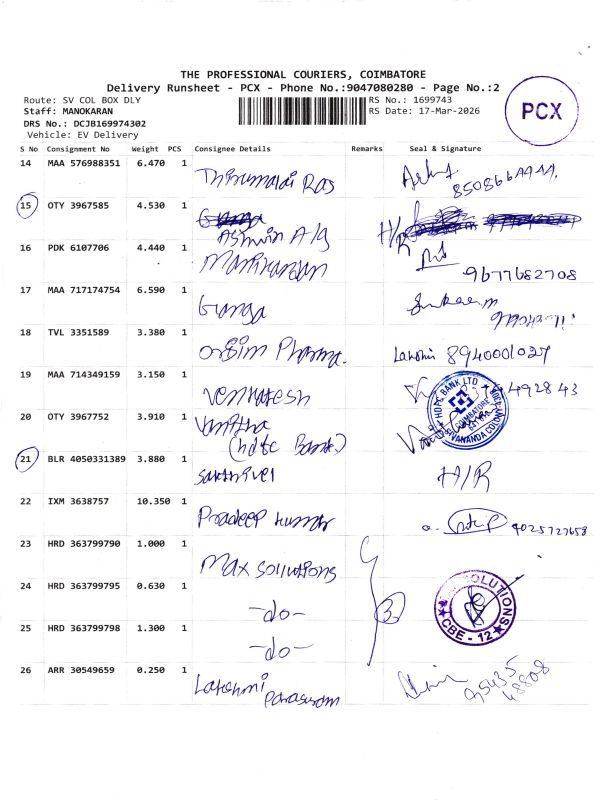 THE PROFESSIONAL COURIERS, COIMBATORE
Delivery Runsheet - PCX - Phone No.:9047080280 - Page No.:2
Route: SV COL BOX DLY
RS No.: 1699743
Staff: MANOKARAN
RS Date: 17-Mar-2026
DRS No.: DCJB169974302
Vehicle: EV Delivery
PCX
S No Consignment No Weight PCS Consignee Details Remarks Seal & Signature
14 MAA 576988351 6.470 1
Thirumalai Ras
15 OTY 3967585 4.530 1
Ashwin A/g
H/R
16 PDK 6107706 4.440 1
Manikandan
9677682708
17 MAA 717174754 6.590 1
Ganga
18 TVL 3351589 3.380 1
Pharma.
8940001027
19 MAA 714349159 3.150 1
Venkatesh
492843
20 OTY 3967752 3.910 1
Vanitha
(hdfc Bank)
HDFC BANK LTD
COIMBATORE
SIVANANDA COLONY
21 BLR 4050331389 3.880 1
Sakthivel
H/R
22 IXM 3638757 10.350 1
Pradeep kumar
9025727658
23 HRD 363799790 1.000 1
Max Solutions
24 HRD 363799795 0.630 1
-do-
3
SOLUTIONS
CBE - 12
25 HRD 363799798 1.300 1
-do-
26 ARR 30549659 0.250 1
Lakshmi
Parasuram
95435
48808